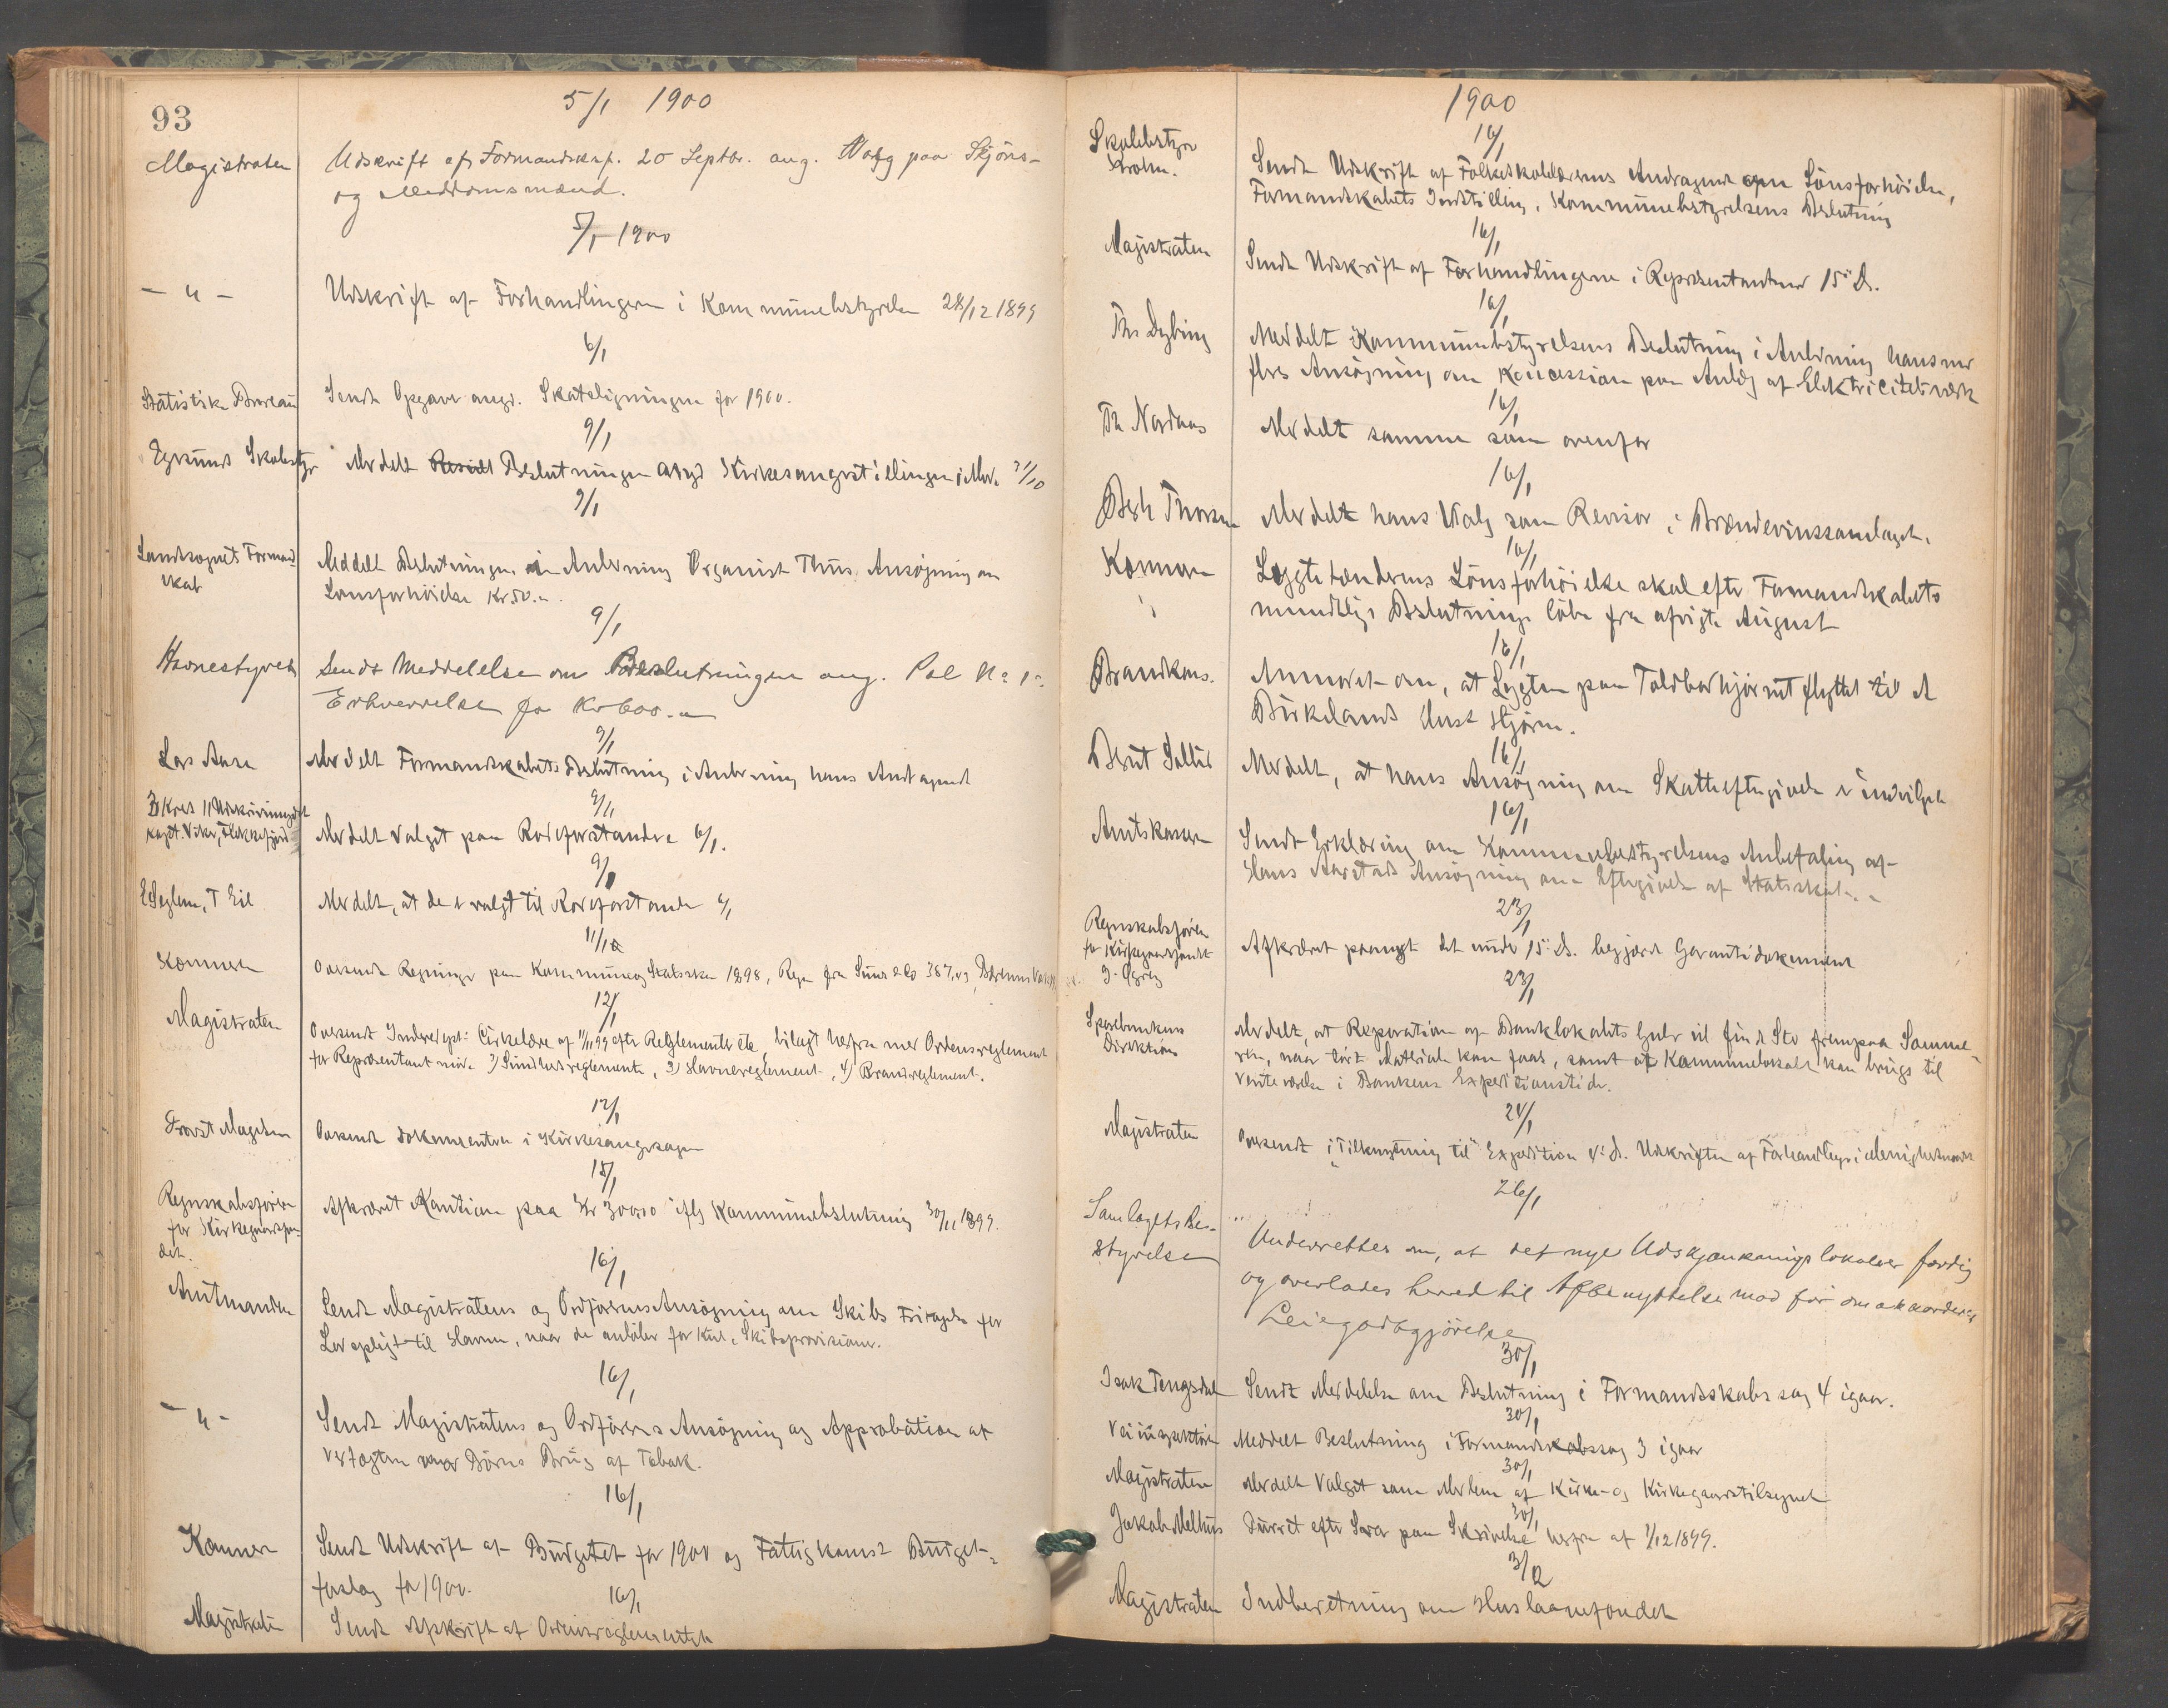 93
5/1 1900
Magistraten Udskrift af Formandskap. 20 Septbr. ang. Valg paa Skjöns-
og Meddomsmænd.
5/1 1900
- " - Udskrift af Forhandlingerne i Kommunebestyrelsen 28/12 1899
6/1
Statistiske Bureau Sendt Opgaver angd. Skateligningen for 1900.
9/1
Egersunds Skolestyr Meddelt Beslutningen angd Kirkesangerstillingen i Mode 31/10
9/1
Landsognets Formand
skab Meddelt Beslutningen i Anledning Organist Thus Ansøgning om
Lønsforhöielse Kr. 50.-
9/1
Havnestyret Sendt Meddelelse om Beslutningen ang. Pal No 1
Erhvervelse for Kr 600.-
9/1
Lars Aase Meddelt Formandskabets Beslutning i Anledning hans Andragende
9/1
Meddelt Valget paa Rodeforstandere 6/1.
9/1
E Seglem, T Eie Meddelt, at de er valgt til Rodeforstandere 6/1
11/1
Kæmneren Oversendt Regninger paa Kommune og Statsskat 1898, Regn fra Sines & Co 387,43
12/1
Magistraten Oversendt Indredept: Cirkulære af 11/11 99 efter Reglementer etc, bilagt herfra med Ordensreglement
for Repræsentantmöde 2) Sundhedsreglement, 3) Havnereglement, 4) Brandreglement.
12/1
Provst Magelsen Oversendt Dokumenterne i Kirkesangersagen
15/1
Regnskabsföreren
for Kirkegaardsfon-
det. Afkrævet Kaution paa Kr 3000,00 iflg Kommunebeslutning 30/11 1899.
16/1
Amtmanden Sendt Magistratens og Ordförerens Ansögning om Skibs Fritagelse for
Lodspligt til Havnen, naar de anlöber for Kul & Skibsprovisioner.
16/1
- " - Sendt Magistratens og Ordförerens Ansögning og Approbation af
Vedtægten mod Börns Brug af Tobak.
16/1
Kæmner Sendt Udskrift af Budgettet for 1900 og Fattigkomss Budget-
forslag for 1900.
16/1
Magistraten Sendt Afskrift af Ordensreglementet
1900
16/1
Skolebstyr
Krohn. Sendt Udskrift af Folkeskolelærernes Andragende om Lönsforhöielse,
Formandskabets Indstilling, Kommunebestyrelsens Beslutning
16/1
Magistraten Sendt Udskrift af Forhandlingerne i Repræsentantmøde 15' ds.
16/1
Ths Dybing Meddelt Kommunebestyrelsens Beslutning i Anledning hans med
fleres Ansögning om Koncession paa Anlæg af Elektricitetsværk
16/1
Th Nordaas Meddelt samme som ovenfor
16/1
Berh Thorsen Meddelt hans Valg som Revisor i Brændevinssamlaget.
16/1
Kæmneren Lygtetænderens Lönsforhöielse skal efter Formandskabets
mundtlige Beslutning löbe fra afvigte August
16/1
Brandkoms. Anmodet om, at Lygten paa Toldbodhjörnet flyttet til A
Birkelands Hus Hjörne.
16/1
Berut Sollid Meddelt, at hans Ansögning om Skatteeftergivelse er indvilget
16/1
Amtskassen Sendt Erklæring om Kommunebestyrelsens Anbefaling af
Hans Aarstads Ansögning om Eftergivelse af Statsskat.
23/1
Regnskabsföreren
for Kirkegaardsfondet Afkrævet paanyt det under 15' ds. begjærede Garantidokument
23/1
Sparebankens
Direktion Meddelt, at Reparation af Banklokalets Gulv vil finde Sted fremover Somme-
ren, naar tört Materiale kan faaes, samt at Kommunelokalet kan bruges til
Venteværelse i Bankens Expeditionstid.
24/1
Magistraten Oversendt i Tilknytning til Expedition 4' ds. Udskriften af Forhandlinger i Menighedsmöde
26/1
Samlagets Be-
styrelse Underrettes om, at det nye Udskjænkningslokale er færdig
og overlades herved til Afbenyttelse mod før om akkorderet
Leiegodtgjörelse
30/1
Isak Tengsdal Sendt Meddelelse om Beslutning i Formandsskabssag 4 igaar.
30/1
Veiinspektören Meddelt Beslutning i Formandskabssag 3 igaar
30/1
Magistraten Meddelt Valget som Medlem af Kirke- og Kirkegaardstilsynet
30/1
Jakob Melhus Purret efter Svar paa Skrivelse herfra af 1/12 1899.
3/2
Magistraten Indberetning om Huslaanefondet